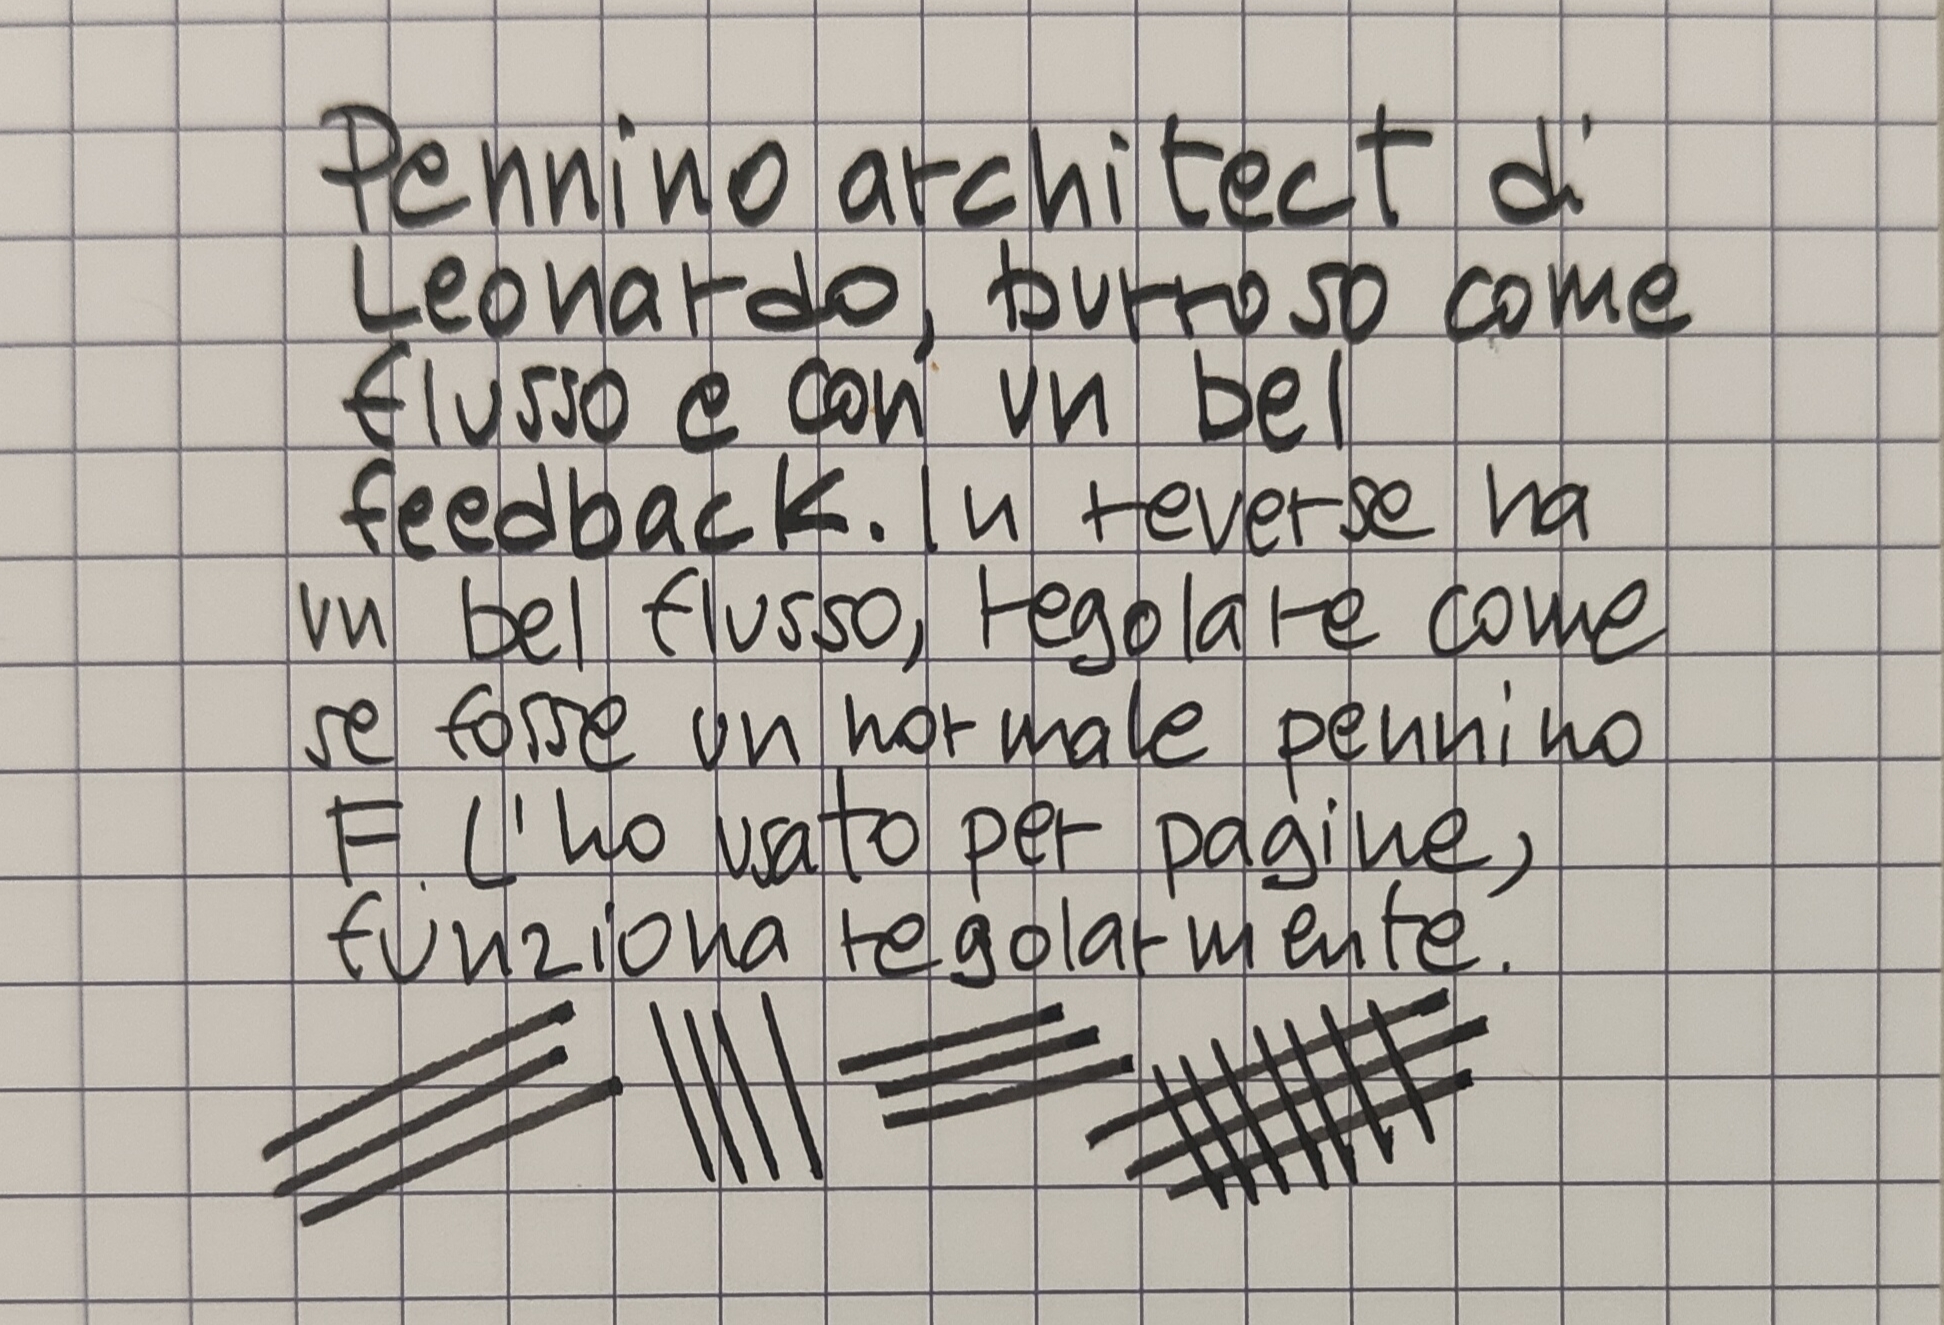 Pennino architect di
Leonardo, burroso come
flusso e con un bel
feedback. In reverse ha
un bel flusso, regolare come
se fosse un normale pennino
F. L'ho usato per pagine,
funziona regolarmente.